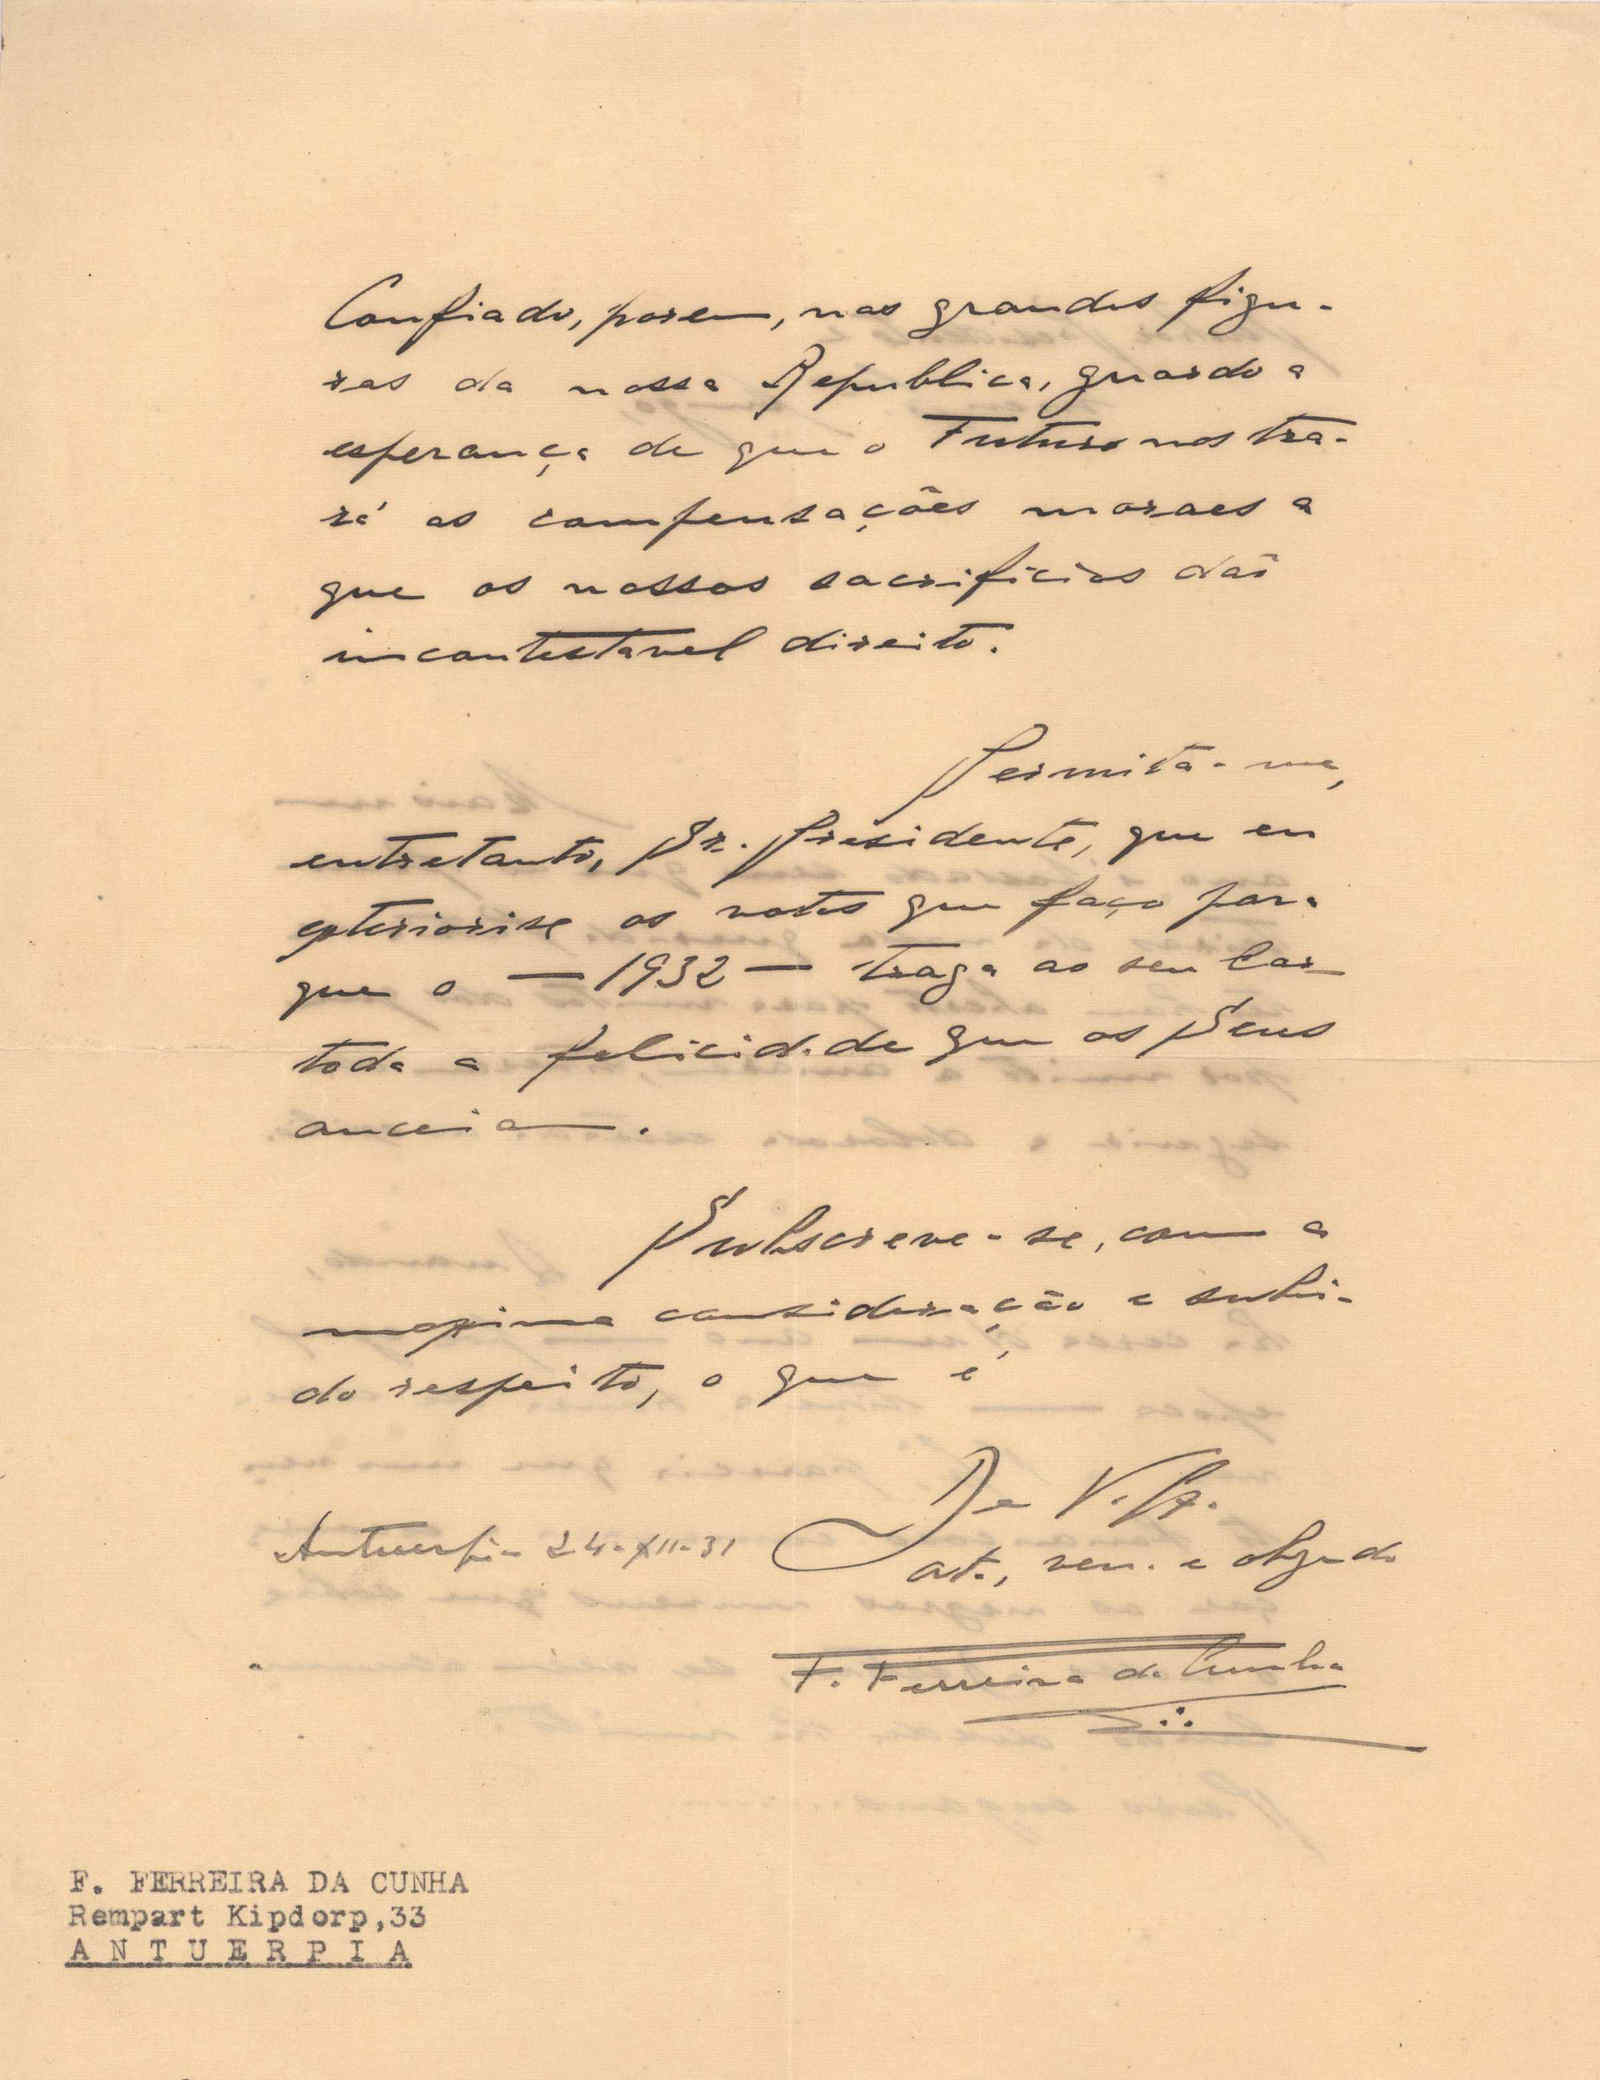 Confiado, porem, nas grandes figu-
ras da nossa Republica, guardo a
esperança de que o Futuro nos tra-
rá as compensações moraes a
que os nossos sacrificios dão
incontestavel direito.
Permita-me,
entretanto, Sr. Presidente, que eu
exteriorise os votos que faço para
que o — 1932 — traga ao seu Lar
toda a felicidade que os Seus
anceiam.
Subscreve-se, com a
maxima consideração e subi-
do respeito, o que é
De V. Ex.
Antuerpia 24-XII-31
at., ven. e obgdo
F. Ferreira da Cunha
F. FERREIRA DA CUNHA
Rempart Kipdorp,33
ANTUERPIA